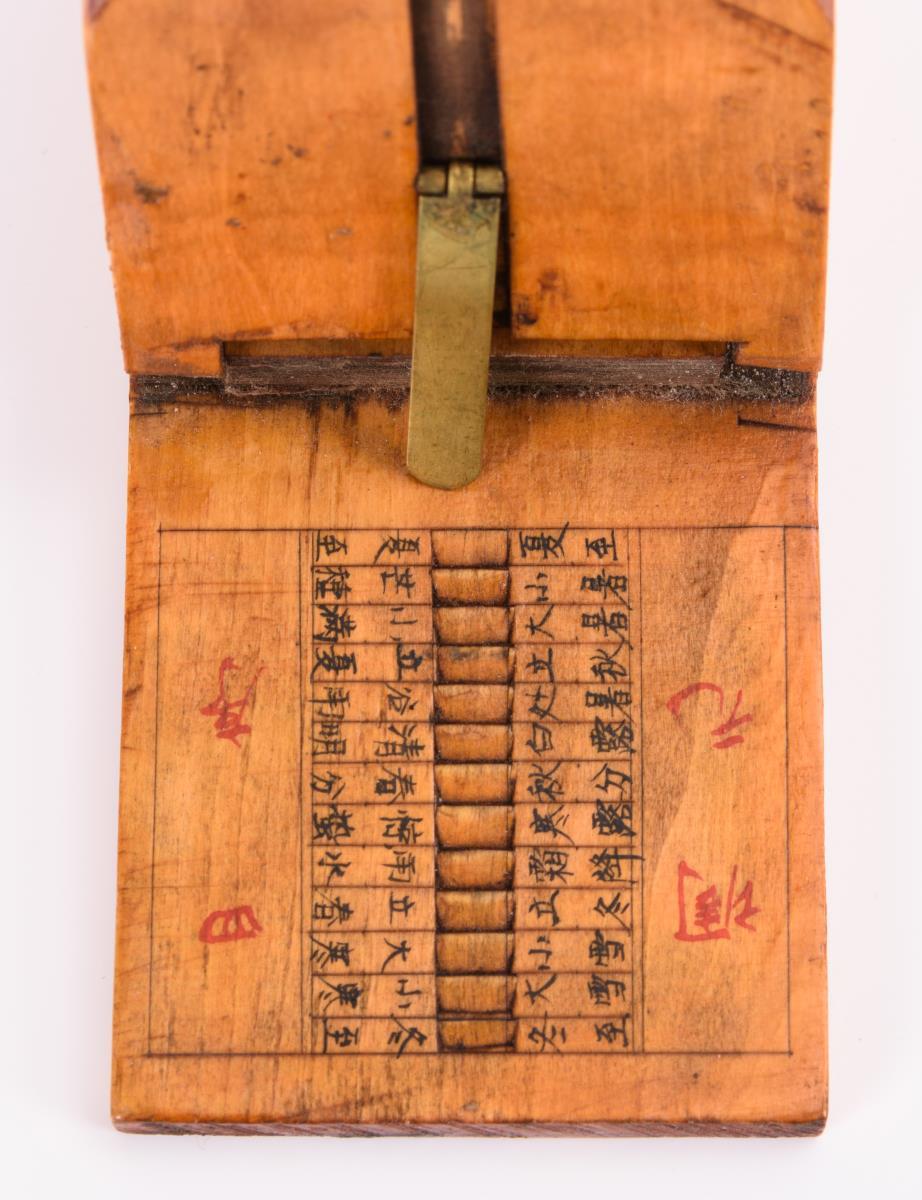 夏至
小暑
大暑
立秋
处暑
白露
秋分
寒露
霜降
立冬
小雪
大雪
冬至
夏至
芒種
小满
立夏
谷雨
清明
春分
雨水
立春
大寒
小寒
冬至